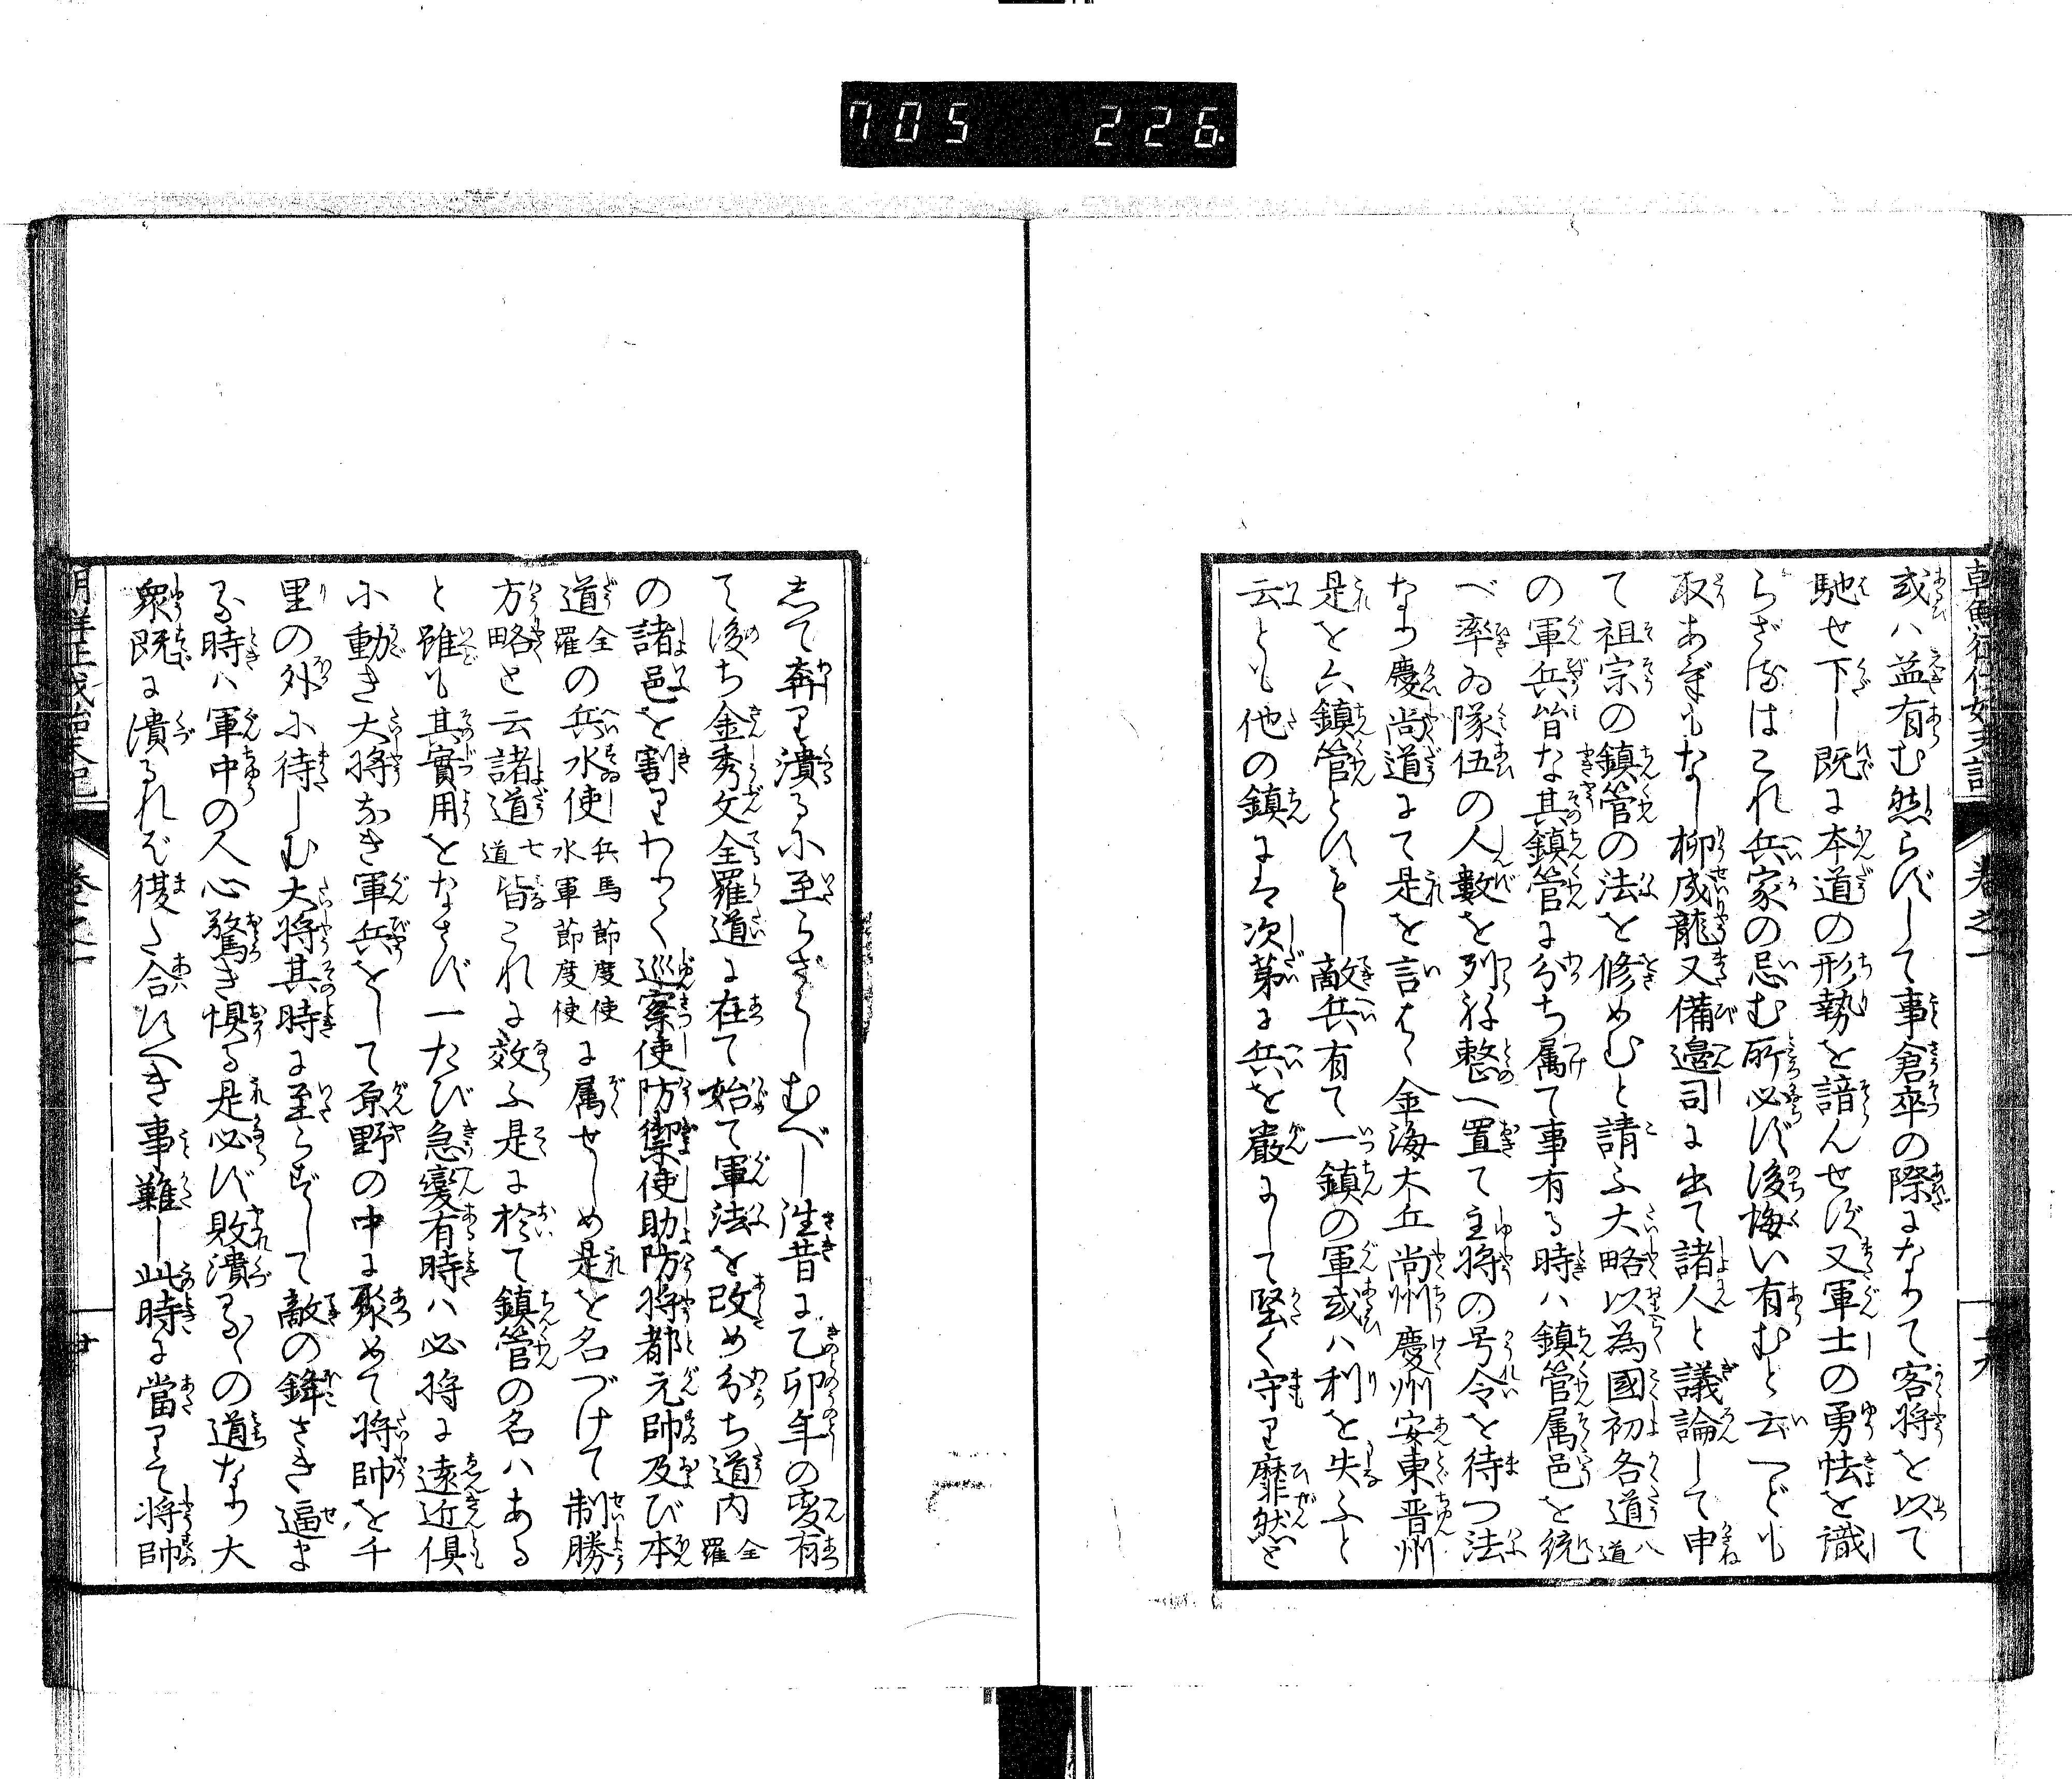 705 226
朝鮮征伐始末記
巻之一
十九
或ハ益有む然らずして事倉卒の際になりて客将を以て
馳せ下し既に本道の形勢を諳んせず又軍士の勇怯を識
らざるはこれ兵家の忌む所必ず後悔い有むと云へども
取あぐるもなし柳成龍又備邊司に出て諸人と議論して申
て祖宗の鎮管の法を修めむと請ふ大略以為國初各道八道
の軍兵皆な其鎮管に分ち属て事有る時ハ鎮管属邑を統
べ率ゐ隊伍の人數を列ね整へ置て主将の号令を待つ法
なり慶尚道にて是を言はゞ金海大丘尚州慶州安東晋州
是を六鎮管とすもし敵兵有て一鎮の軍或ハ利を失ふと
云とも他の鎮には次第に兵を嚴にして堅く守り靡然と
して奔り潰るに至らざらしむべし往昔に乙卯年の変有
て後ち金秀文全羅道に在て始て軍法を改め分ち道内全羅
の諸邑を割りわかく巡察使防禦使助防将都元帥及び本
道全羅の兵水使兵馬節度使水軍節度使に属せしめ是を名づけて制勝
方略と云諸道七道皆これに效ふ是に於て鎮管の名ハある
と雖も其實用をなさず一たび急變有時ハ必将に遠近倶
に動き大将なき軍兵をして原野の中に聚めて将帥を千
里の外に待しむ大将其時に至らずして敵の鋒さき逼ま
る時ハ軍中の人心驚き惧る是必ず敗潰るゝの道なり大
衆既に潰るれば復た合すべき事難し此時に當りて将帥
朝鮮征伐始末記
巻之一
廿